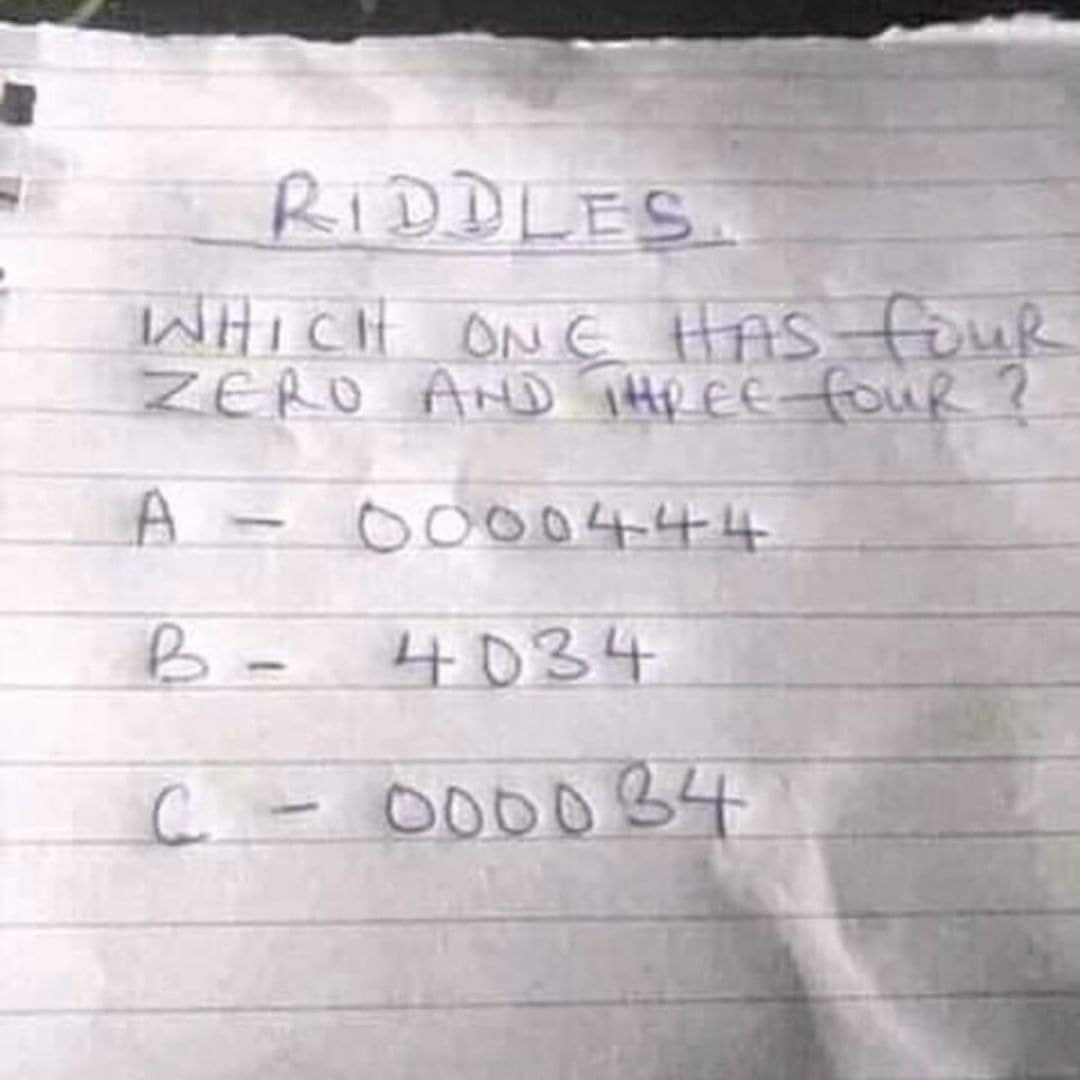 RIDDLES.
WHICH ONE HAS four
ZERO AND THREE four?
A - 0000444
B - 4034
C - 000034